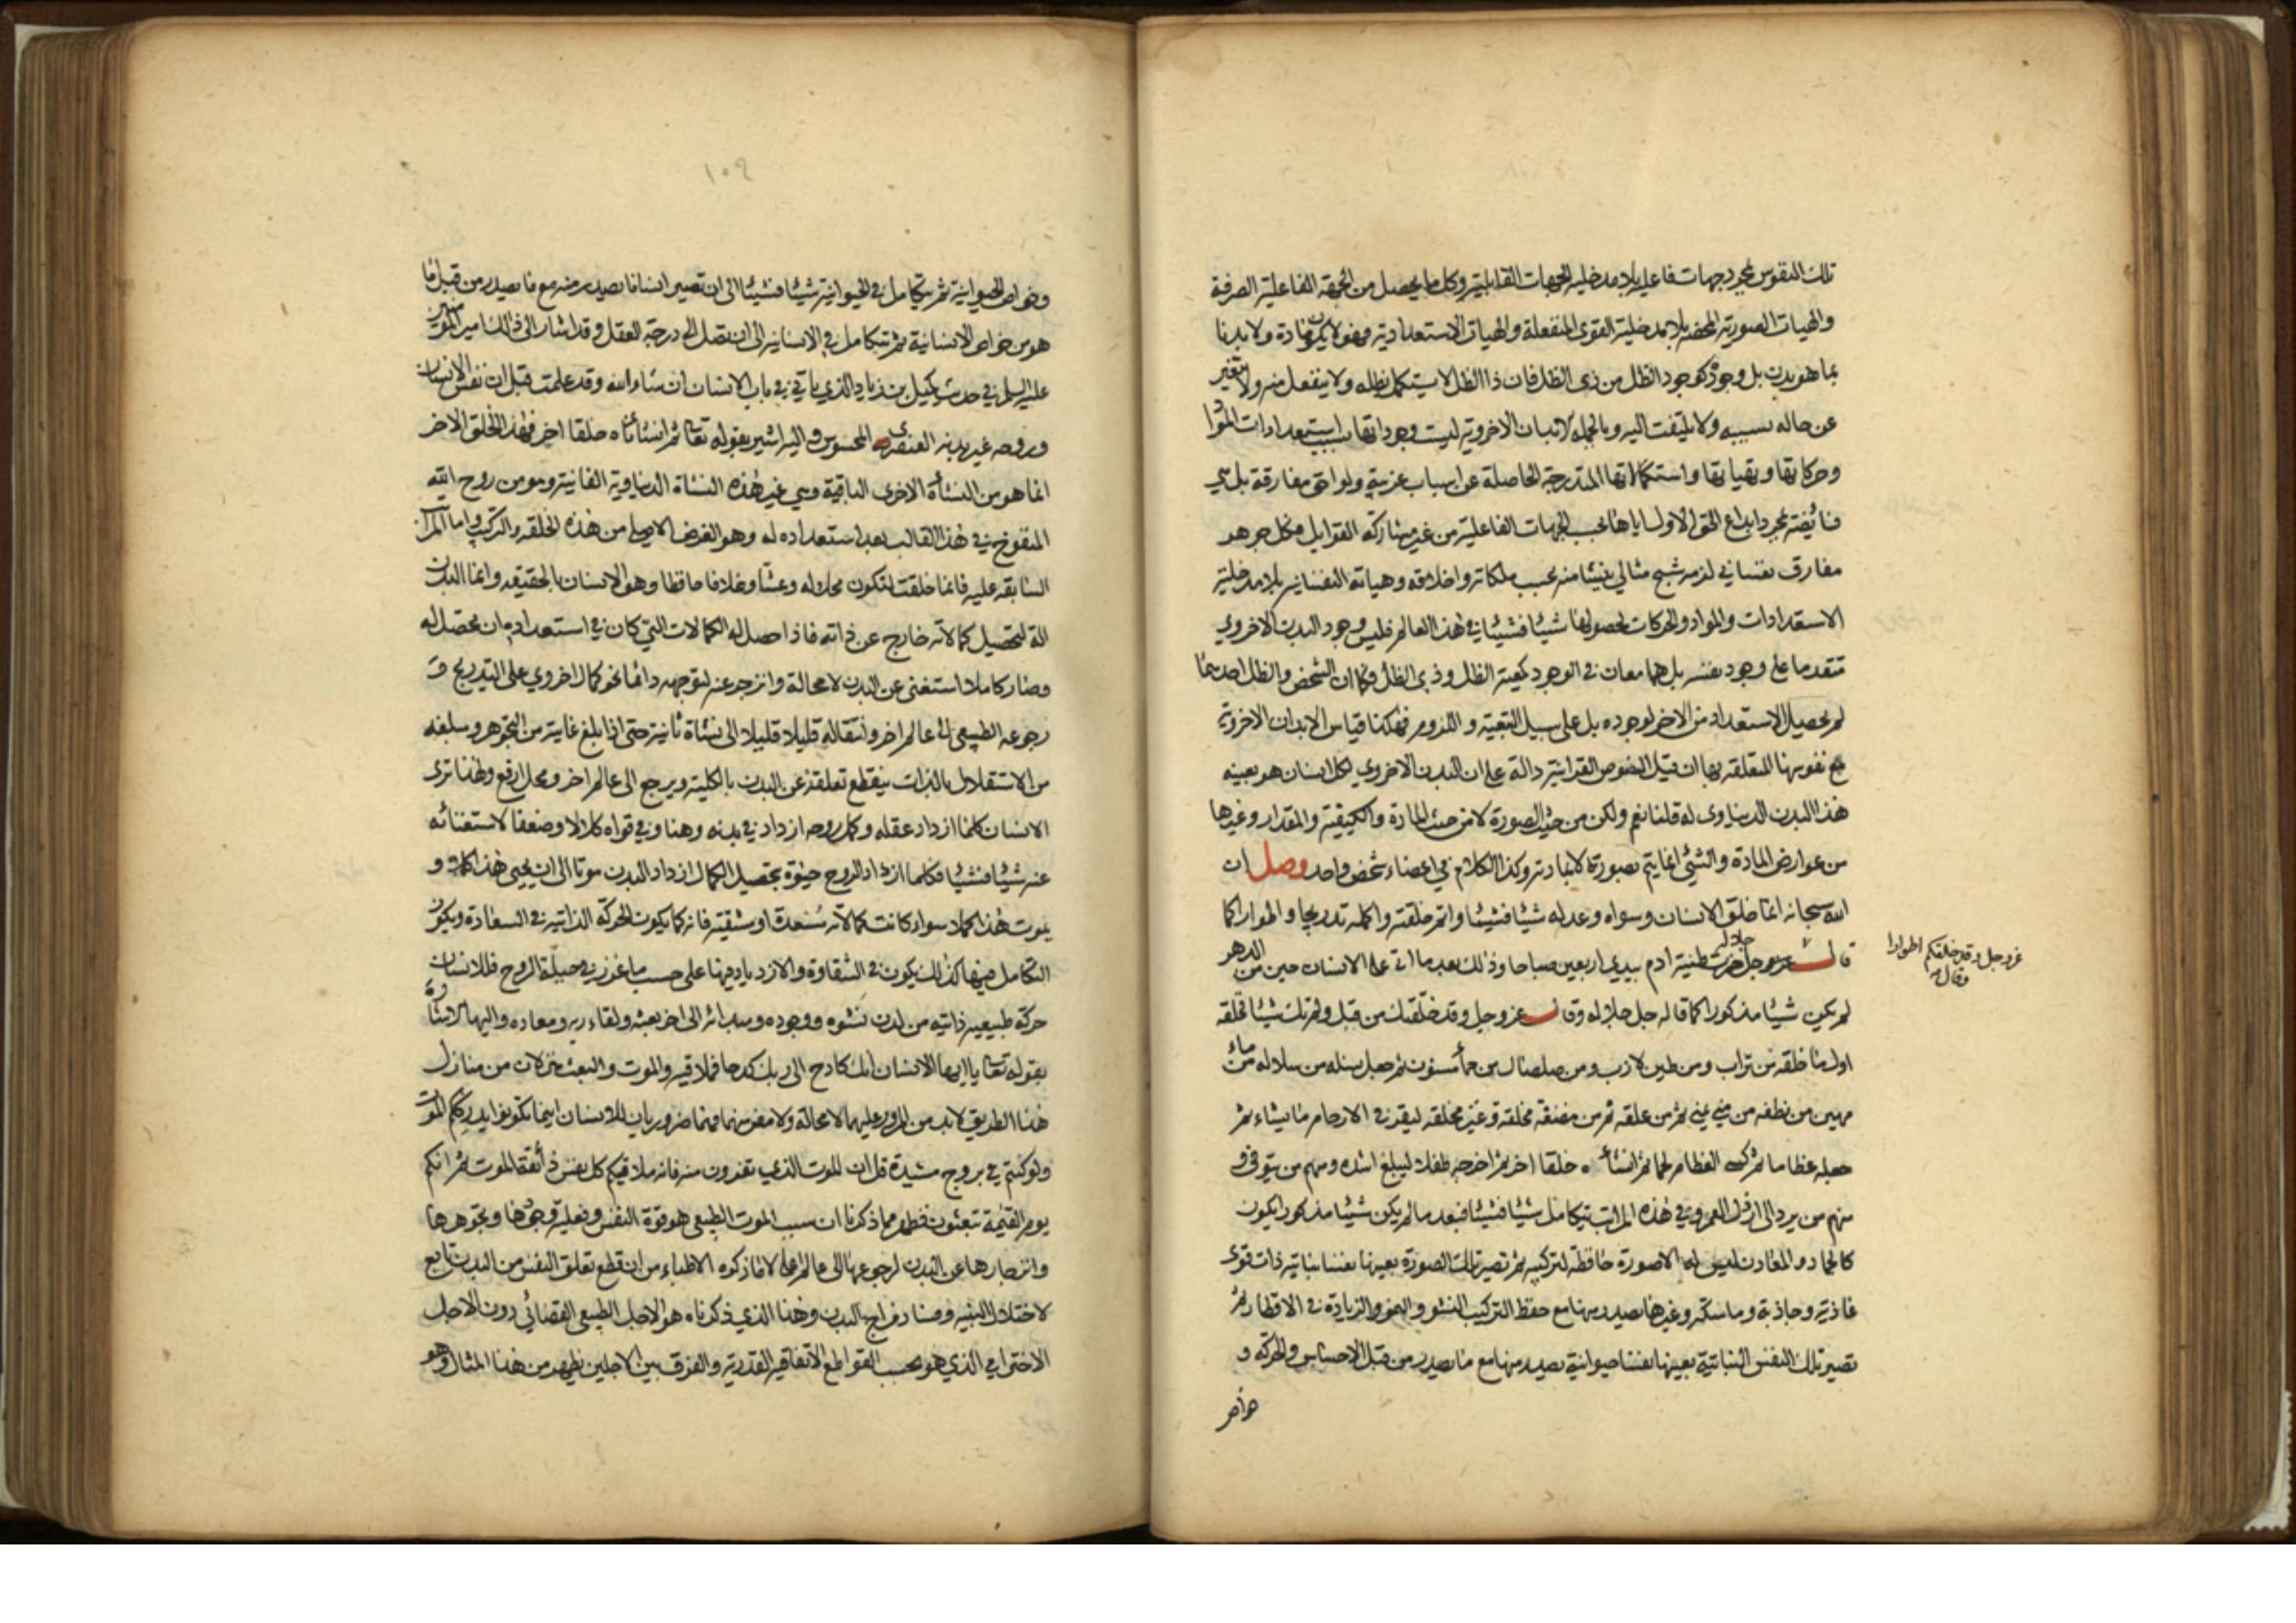 تلك النفوس بمجرد جهات فاعلية بلا مدخلية الجهات القابلية وكل ما يحصل من الجهة الفاعلية الصرفة
والهيات الصورية المحضة بلا مدخلية القوى المنفعلة والهيات الاستعدادية فهو لا يكون مادة ولا بدنا
بما هو بدن بل وجوده كوجود الظل من ذي الظل فان ذا الظل لا يستكمل بظله ولا ينفعل منه ولا يتغير
عن حاله بسببه ولا يلتفت اليه وبالجملة الابدان الاخروية ليست وجوداتها بسبب استعدادات المواد
وحركاتها وتهياتها واستكمالاتها المتدرجة الحاصلة عن اسباب غريبة ولواحق مفارقة بل هي
فائضة بمجرد ابداع الحق الاول اياها بحسب الجهات الفاعلية من غير مشاركة القوابل فكل جوهر
مفارق نفساني لزمه شبح مثالي ينشأ منه بحسب ملكاته واخلاقه وهياته النفسانية بلا مدخلية
الاستعدادات والمواد والحركات لحصولها شيئا فشيئا في هذا العالم فليس وجود البدن الاخروي
متقدما على وجود نفسه بل هما معان في الوجود كمعية الظل وذي الظل فكما ان الشخص والظل احدهما
لم يحصل الاستعداد من الاخر لوجوده بل على سبيل التبعية واللزوم فهكذا قياس الابدان الاخروية
مع نفوسها المتعلقة بها ان قيل النصوص القرانية دالة على ان البدن الاخروي لكل انسان هو بعينه
هذا البدن الدنياوى له قلنا نعم ولكن من حيث الصورة لا من حيث المادة والكيفية والمقدار وغيرها
من عوارض المادة والشئ انما يتم بصورته لا بمادته وكذا الكلام في اعضاء شخص واحد وصل ان
الله سبحانه انما خلق الانسان وسواه وعدله شيئا فشيئا واتم خلقته واكمله تدريجا واطوارا كما
قال عز وجل خمرت طينة ادم بيدي اربعين صباحا وذلك بعد ما اتى على الانسان حين من الدهر
عز وجل وقد خلقكم اطوارا
وقال
لم يكن شيئا مذكورا كما قاله جل جلاله وقال عز وجل وقد خلقتك من قبل ولم تك شيئا فخلقه
اول ما خلقه من تراب ومن طين لازب ومن صلصال من حمأ مسنون ثم جعل نسله من سلالة من ماء
مهين من نطفة من مني يمنى ثم من علقة ثم من مضغة مخلقة وغير مخلقة ليقر في الارحام ما يشاء ثم
جعله عظاما ثم كسا العظام لحما ثم انشأه خلقا اخر ثم اخرجه طفلا ليبلغ اشده ومنهم من يتوفى و
منهم من يرد الى ارذل العمر وفي هذه المراتب يتكامل شيئا فشيئا فبعد ما لم يكن شيئا مذكورا يكون
كالجماد والمعادن ليس له الا صورة حافظة لتركيبه ثم تصير تلك الصورة بعينها نفسا نباتية ذات قوى
غاذية وجاذبة وماسكة وغيرها يصدر منها مع حفظ التركيب النشو والنمو والزيادة في الاقطار ثم
تصير تلك النفس النباتية بعينها نفسا حيوانية يصدر منها مع ما يصدر من قبل الاحساس والحركة و
خواص
١٠٩
وخواص الحيوانية ثم يتكامل في الحيوانية شيئا فشيئا الى ان تصير انسانا يصدر منه مع ما يصدر من قبل ما
هو من خواص الانسانية ثم تتكامل في الانسانية الى ان تصل الى درجة العقل وقد اشار الى ذلك امير المؤمنين
عليه السلم في حديث كميل بن زياد الذي ياتي في باب الانسان ان شاء الله وقد علمت قبل ان نفس الانسان
وروحه غير بدنه العنصري المحسوس واليه اشير بقوله تعا ثم انشأناه خلقا اخر فهذا الخلق الاخر
انما هو من النشأة الاخرى الباقية وهي غير هذه النشاة الدنياوية الفانية وهو من روح الله
المنفوخ في هذا القالب بعد استعداده له وهو الغرض الاصلي من هذه الخلقة والتركيب واما المراتب
السابقة عليه فانما خلقت لتكون محلا له وعشا وغلافا حافظا وهو الانسان بالحقيقة وانما البدن
الة لتحصيل كمالاته خارج عن ذاته فاذا حصل له الكمالات التي كان في استعداده ان تحصل له
وصار كاملا استغنى عن البدن لا محالة وانزجر عنه لتوجهه دائما نحو كمال اخروي على التدريج و
رجوعه الطبيعي الى عالم اخر وانتقاله قليلا قليلا الى نشاة ثانية حتى اذا بلغ غايته من التجوهر ومبلغه
من الاستقلال بالذات ينقطع تعلقه عن البدن بالكلية ويرجع الى عالم اخر ومحل ارفع ولهذا ترى
الانسان كلما ازداد عقله وكمل روحه ازداد في بدنه وهنا وفي قواه كلالا وضعفا لاستغنائه
عنه شيئا فشيئا فكلما ازداد الروح حيوة بتحصيل الكمال ازداد البدن موتا الى ان يحيى هذا كله و
يموت هذا كله سواء كانت كمالاته مسعدة او مشقية فانه كما يكون الحركة الذاتية في السعادة ويكون
التكامل فيها كذلك يكون في الشقاوة والازدياد فيها على حسب ما غرز في جبلة الروح فللانسان
حركة طبيعية ذاتية من لدن نشوه ووجوده ومبدائه الى اخر بعثه ولقاء ربه ومعاده واليها الاشارة
بقوله تعا يا ايها الانسان انك كادح الى ربك كدحا فملاقيه والموت والبعث منزلان من منازل
هذا الطريق لا بد من المرور عليهما لا محالة ولا مفر منهما فهما ضروريان للانسان اينما تكونوا يدرككم الموت
ولو كنتم في بروج مشيدة قل ان الموت الذي تفرون منه فانه ملاقيكم كل نفس ذائقة الموت ثم انكم
يوم القيمة تبعثون فظهر مما ذكرنا ان سبب الموت الطبيعي هو قوة النفس وفعلية وجودها وتجوهرها
وانزجارها عن البدن لرجوعها الى عالم اعلى لا ما ذكره الاطباء من ان قطع تعلق النفس من البدن تابع
لاختلال البنية وفساد مزاج البدن وهذا الذي ذكرناه هو الاجل الطبيعي القضائي دون الاجل
الاخترامي الذي هو بحسب القواطع الاتفاقية القدرية والفرق بين الاجلين يظهر من هذا المثال وهو